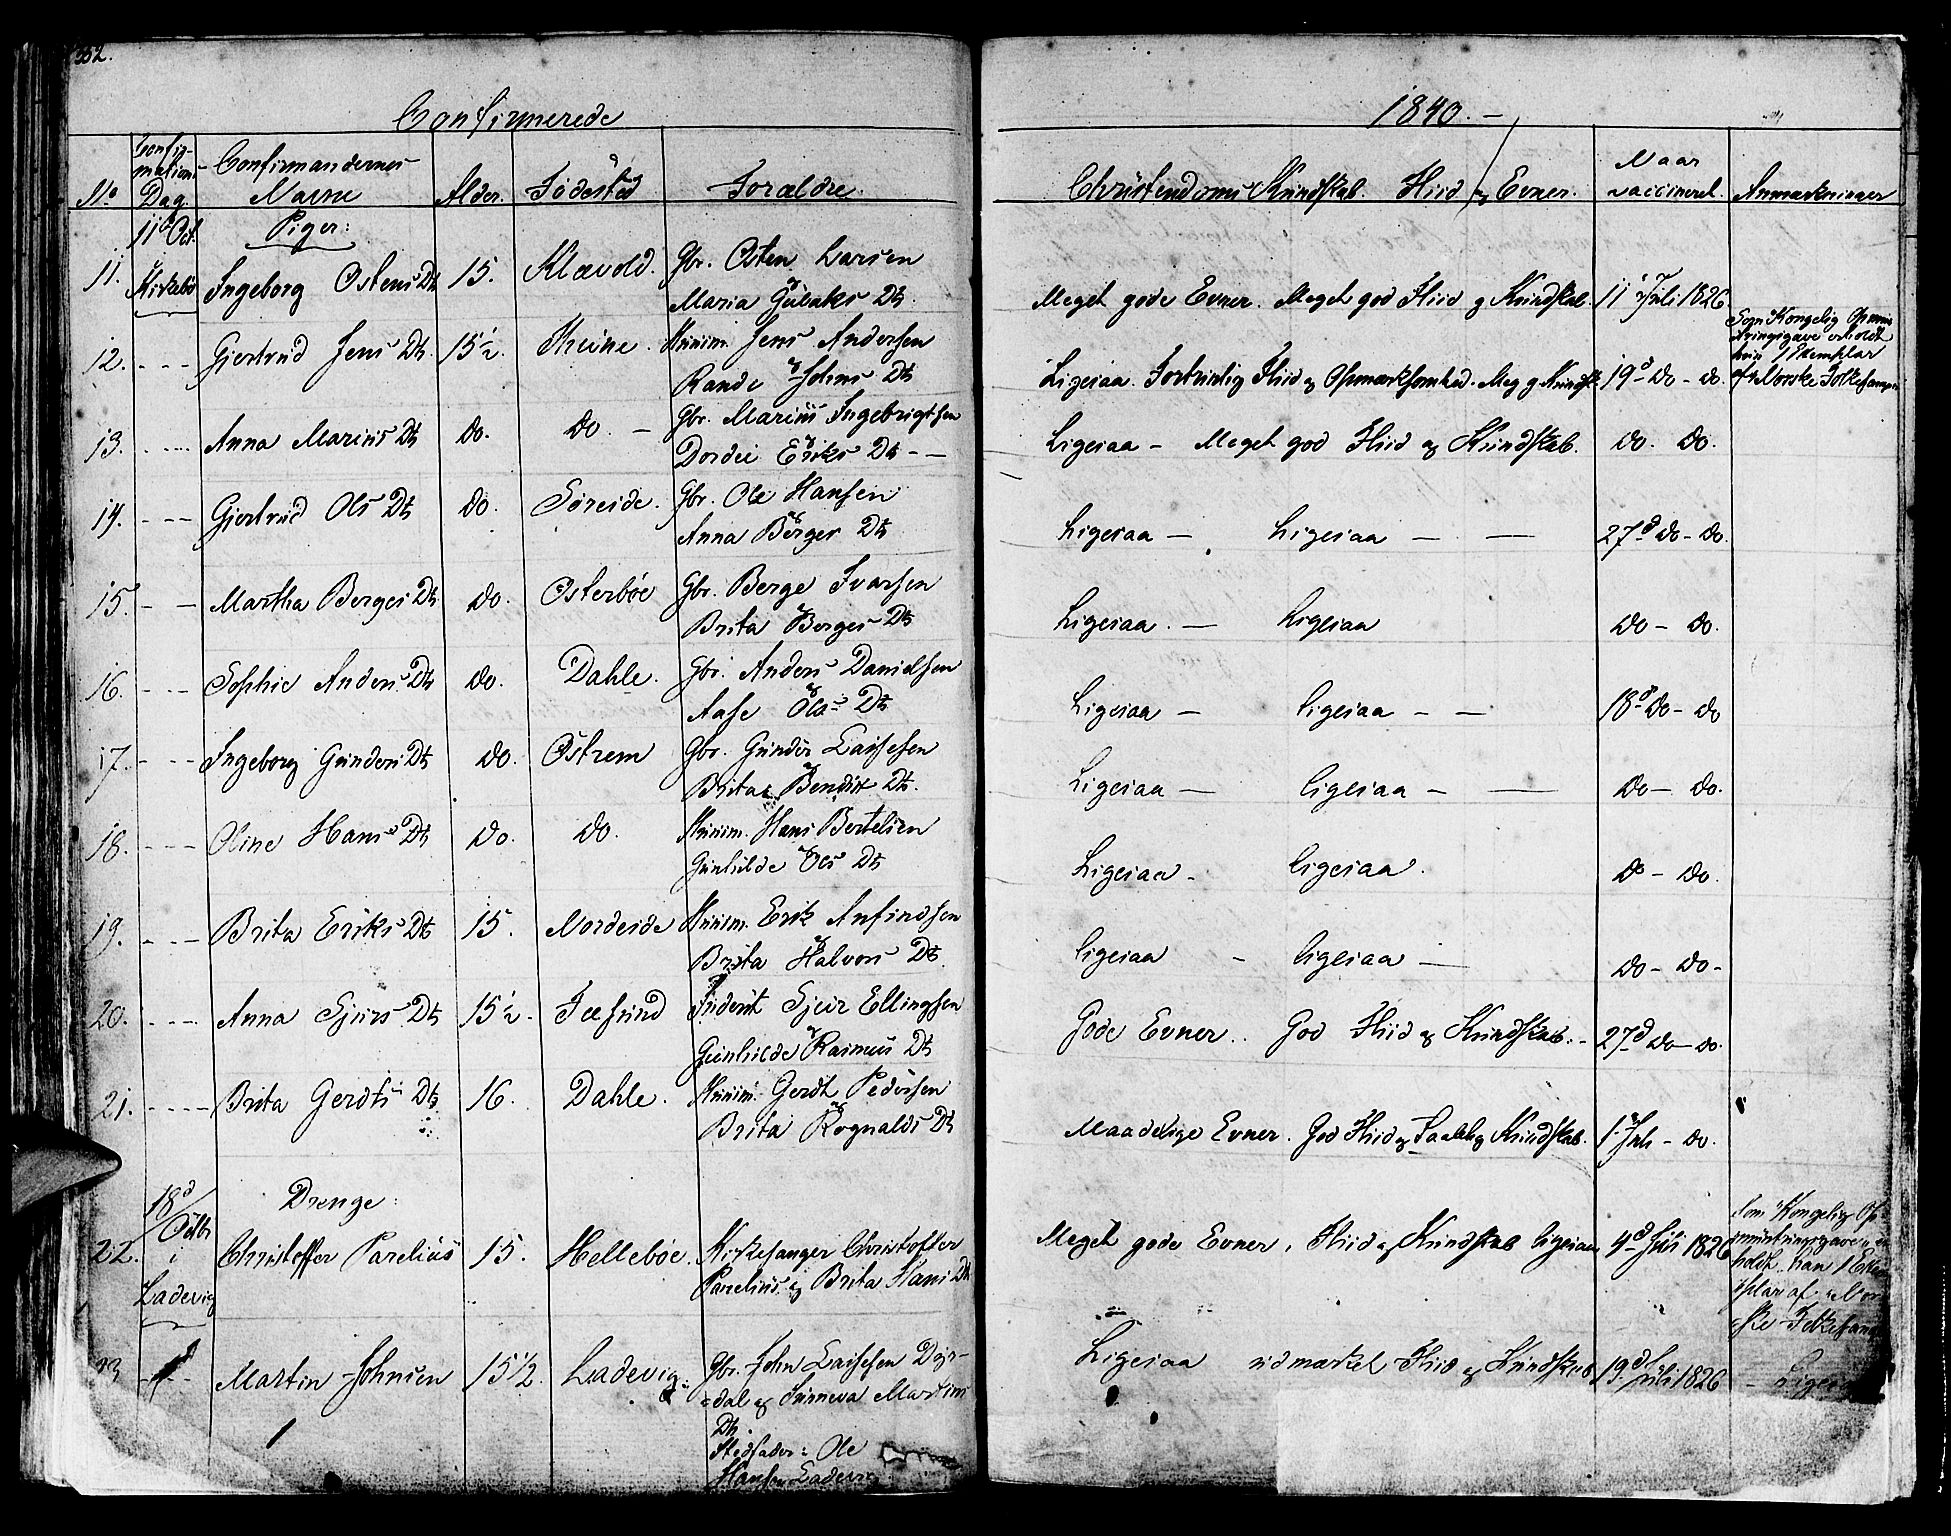 332.
Confirmerede
1840. –
No
Confir-
mations
Dag.
Confirmandernes
Navne
Alder.
Fødested
Forældre.
Christendoms Kundskab. Fliid og Evner.
Naar
vaccineret.
Anmærkninger
11te Oct. Piger:
11. Kirkebø Ingeborg Ostens Dtr 15. Klævold. Gbr. Osten Larsen
Maria Gulaks Dtr. Meget gode Evner. Meget god Fliid og Kundskab. 11te Juli 1826
12. - - - Gjertrud Jens Dtr. 15½. Kleine. Huusm. Jens Andersen
og Rande Johns Dtr Ligesaa. Fortrinlig Fliid og Opmærksomhed. Meg. g. Kundsk. 19d – do – do.
Som Kongelig Opmun
tringsgave erholdt
hun 1 Exemplar
af Norske Folkesange
13. - - - Anna Marius Dtr do. do. – Gbr. Marius Ingebrigtsen
og Dordei Eriks Dtr - - Ligesaa – Meget god Fliid og Kundskab. do. do.
14. - - - Gjertrud Ols Dtr do. Søreide. Gbr. Ole Hansen
og Anna Berges Dtr Ligesaa – Ligesaa – – 27d do – do.
15. - - Martha Berges Dtr do. Osterbøe Gbr. Berge Ivarsen
og Brita Berges Dtr Ligesaa. – Ligesaa do – do.
16. - - - Sophie Anders Dtr do. Dahle. Gbr. Anders Danielsen
og Aase Ols Dtr Ligesaa – ligesaa – – 18d do – do
17. - - - Ingeborg Gunders Dtr do. Ostrem Gbr. Gunder Lassesen
og Brita Bendix Dtr. Ligesaa – ligesaa – – do – do.
18. - - - Oline Hans Dtr do. do. Huusm. Hans Bertelsen
og Gunhilde Ols Dtr Ligesaa – ligesaa. do – do.
19. - - - Brita Eriks Dtr 15. Nordeide Huusm. Erik Anfindsen
og Brita Halvors Dtr. ligesaa – ligesaa – do – do –
20. - - - Anna Sjurs Dtr 15½. Ice sund Inderst Sjur Ellingsen
og Gunhilde Rasmus Dtr Gode Evner. God Fliid og Kundskab. – 27d do – do.
21. - - - - Brita Gerdts Dtr 16. Dahle. Huusm. Gerdt Pedersen
og Brita Rognalds Dtr Maadelige Evner. God Fliid og Taalelig Kundskab. 1te Juli – do.
18d/Octbr Drenge:
22. i Ladevig Christoffer Parelius 15. Hellebøe. Kirkesanger Christoffer
Parelius og Brita Hans Dtr Meget gode Evner, Fliid og Kundskab ligesaa 4d Juli 1826
Som Kongelig Op-
muntringsgave er
holdt han 1 Exem
plar af Nor
ske Folkesange
23 Martin Johnsen 15½. Ladevig. Gbr. John Lassesen Dys-
dal og Sunneva Martins
Dtr.
Stedfader: Ole
Hansen Ladevig
Ligesaa udmærket Fliid og Kundskab 19d Juli 1826 – Ligesaa